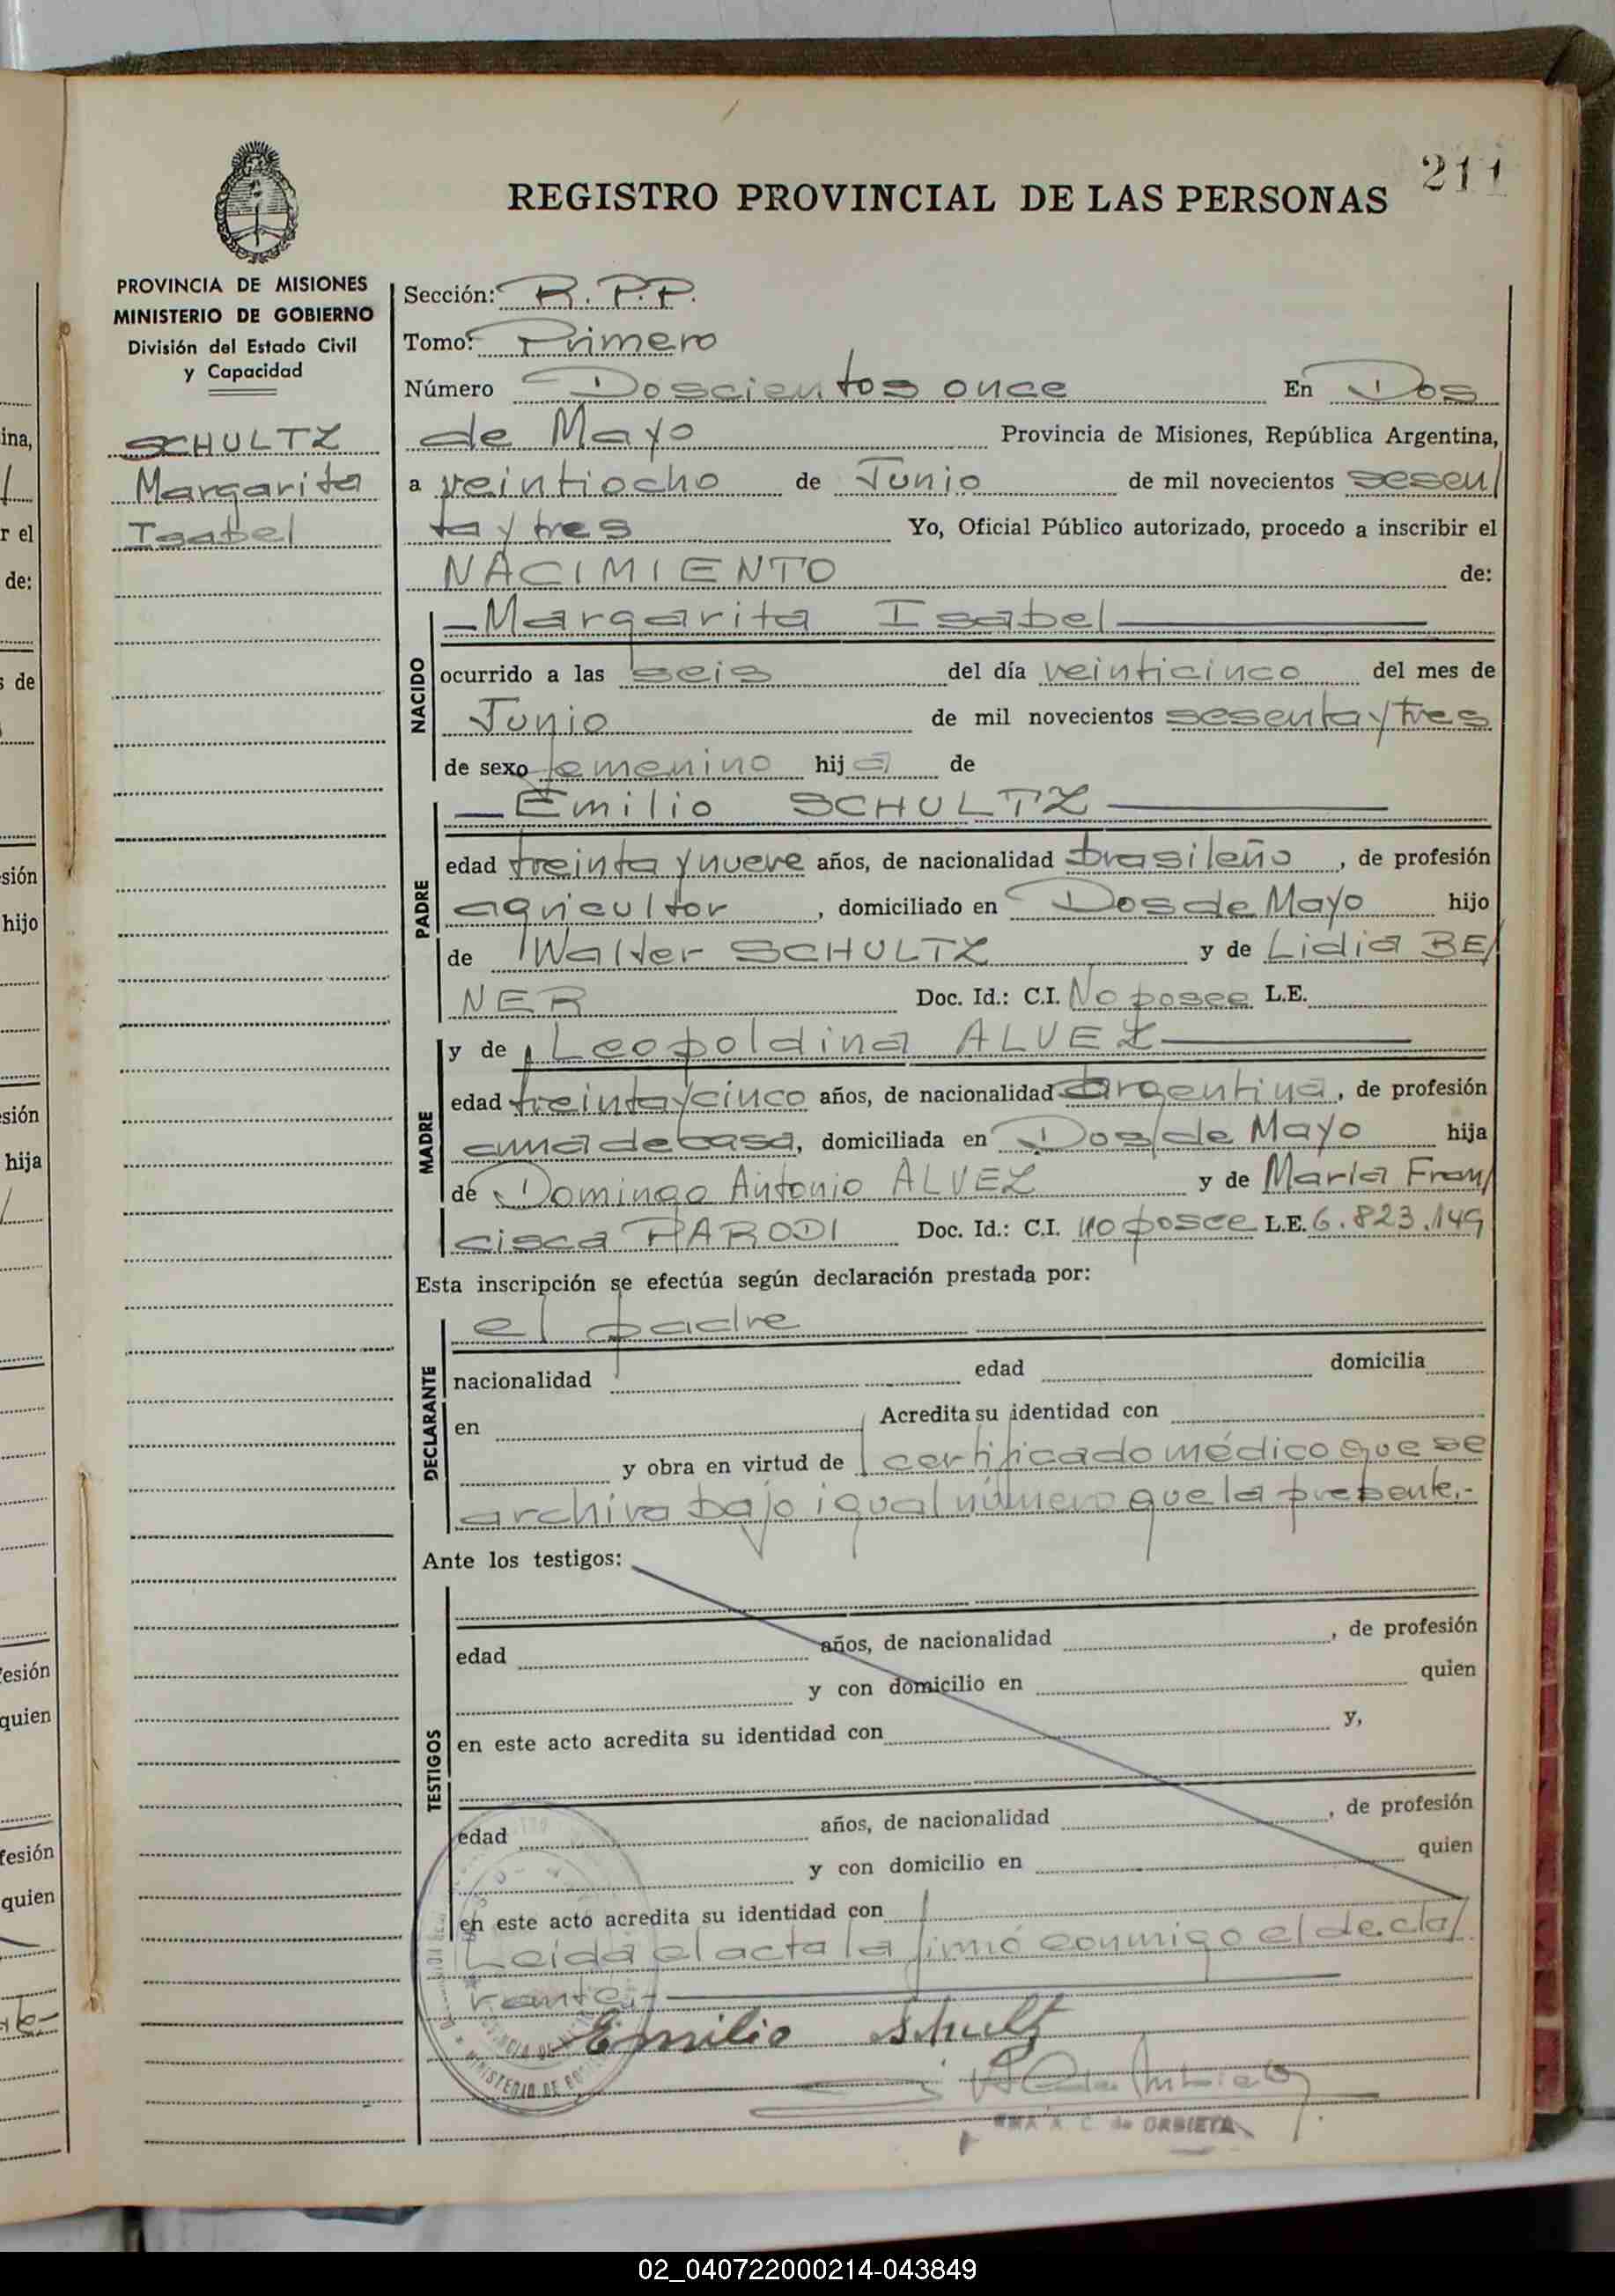 211
REGISTRO PROVINCIAL DE LAS PERSONAS
PROVINCIA DE MISIONES
MINISTERIO DE GOBIERNO
División del Estado Civil
y Capacidad
SCHULTZ
Margarita
Isabel
Sección: R. P.P.
Tomo: Primero
Número Doscientos once En Dos
de Mayo Provincia de Misiones, República Argentina,
a veintiocho de Junio de mil novecientos sesen/
ta y tres Yo, Oficial Público autorizado, procedo a inscribir el
NACIMIENTO de:
NACIDO
—Margarita Isabel—
ocurrido a las seis del día veinticinco del mes de
Junio de mil novecientos sesenta y tres
de sexo femenino hija de
PADRE
—Emilio SCHULTZ—
edad treinta y nueve años, de nacionalidad brasileño, de profesión
agricultor, domiciliado en Dos de Mayo hijo
de Walter SCHULTZ y de Lidia BE/
NER Doc. Id.: C.I. No posee L.E.
MADRE
y de Leopoldina ALVEZ—
edad treinta y cinco años, de nacionalidad argentina, de profesión
ama de casa, domiciliada en Dos de Mayo hija
de Domingo Antonio ALVEZ y de María Fran/
cisca PARODI Doc. Id.: C.I. no posee L.E. 6.823.149
Esta inscripción se efectúa según declaración prestada por:
DECLARANTE
el padre
nacionalidad edad domicilia
en Acredita su identidad con
y obra en virtud de certificado médico que se
archiva bajo igual número que la presente.-
Ante los testigos:
TESTIGOS
edad años, de nacionalidad , de profesión
y con domicilio en quien
en este acto acredita su identidad con y,
edad años, de nacionalidad , de profesión
y con domicilio en quien
en este acto acredita su identidad con
Leida el acta la firmó conmigo el decla/
rante.-
Emilio Schultz
A. C. de ORBIETA
ina,
r el
de:
s de
sión
hijo
sión
hija
fesión
quien
fesión
quien
02_040722000214-043849